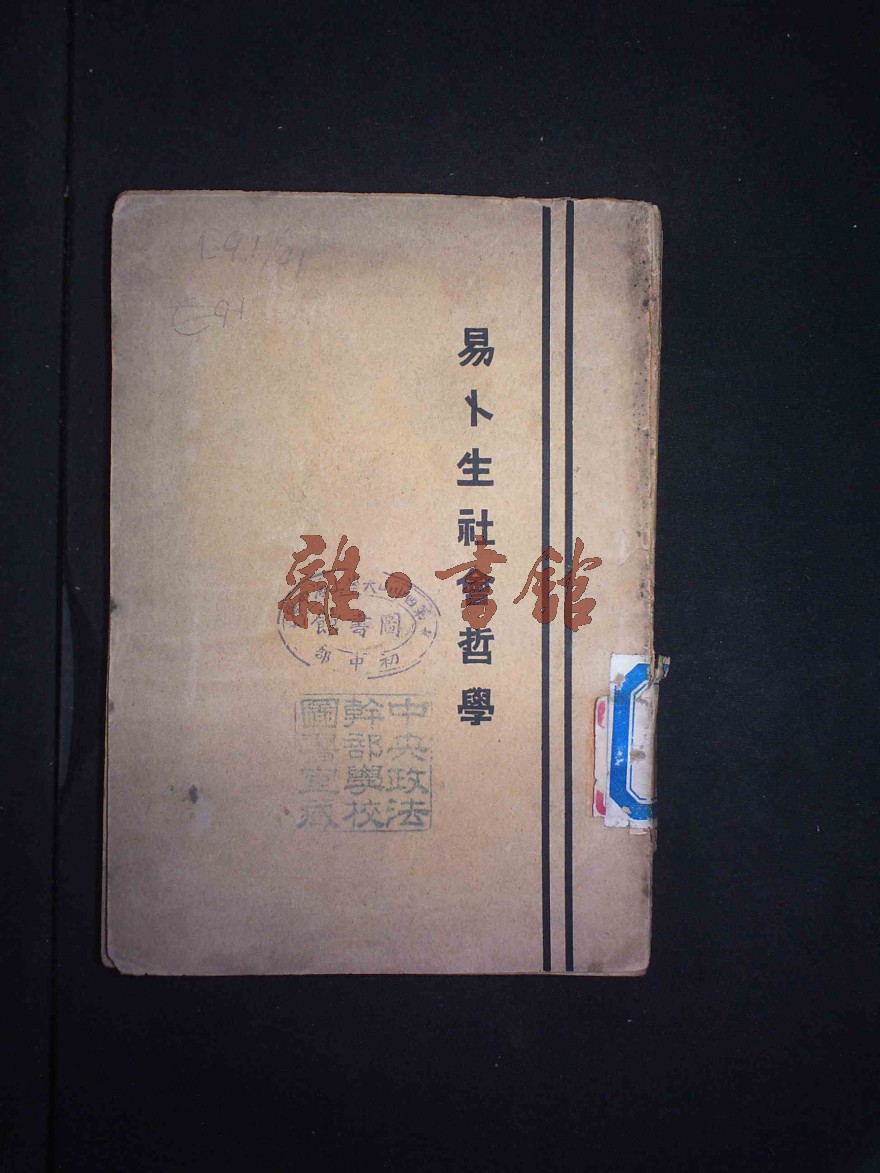 易卜生社會哲學
雜·書館
圖書館
初中部
中央政法
幹部學校
圖書室藏